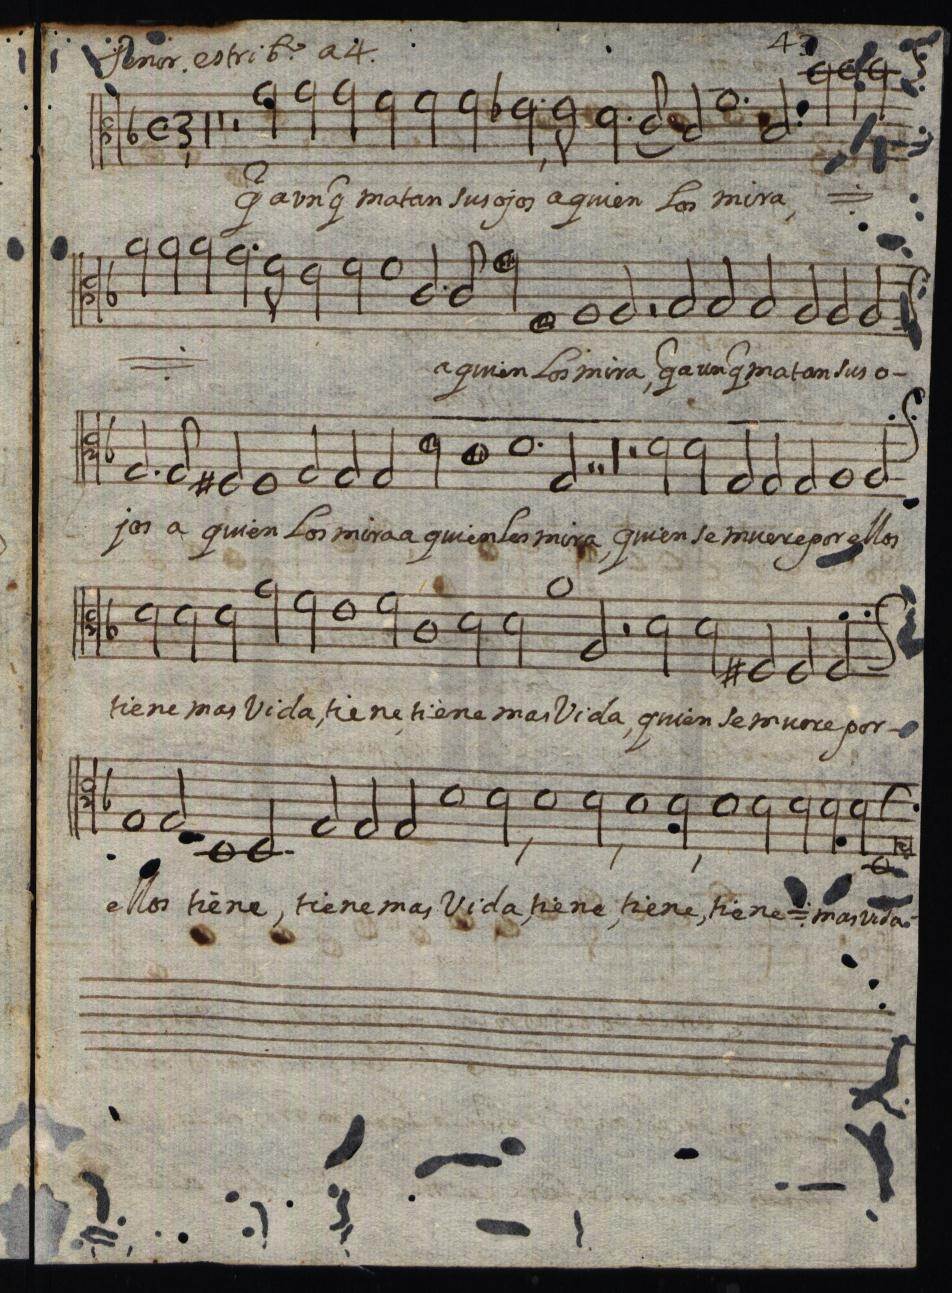 Tenor. estribº. a 4.
43
q̃ aunq̃ matan sus ojos a quien los mira,
a quien los mira, q̃ aunq̃ matan sus o-
jos a quien los mira a quien los mira, quien se muere por ellos
tiene mas Vida, tiene, tiene mas Vida, quien se muere por-
ellos tiene, tiene mas Vida, tiene, tiene, tiene mas vida